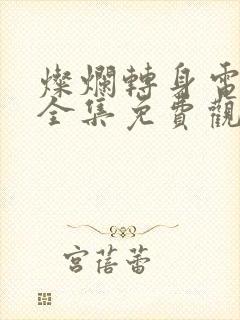 燦爛轉身電
全集免費觀
宮蓓蕾